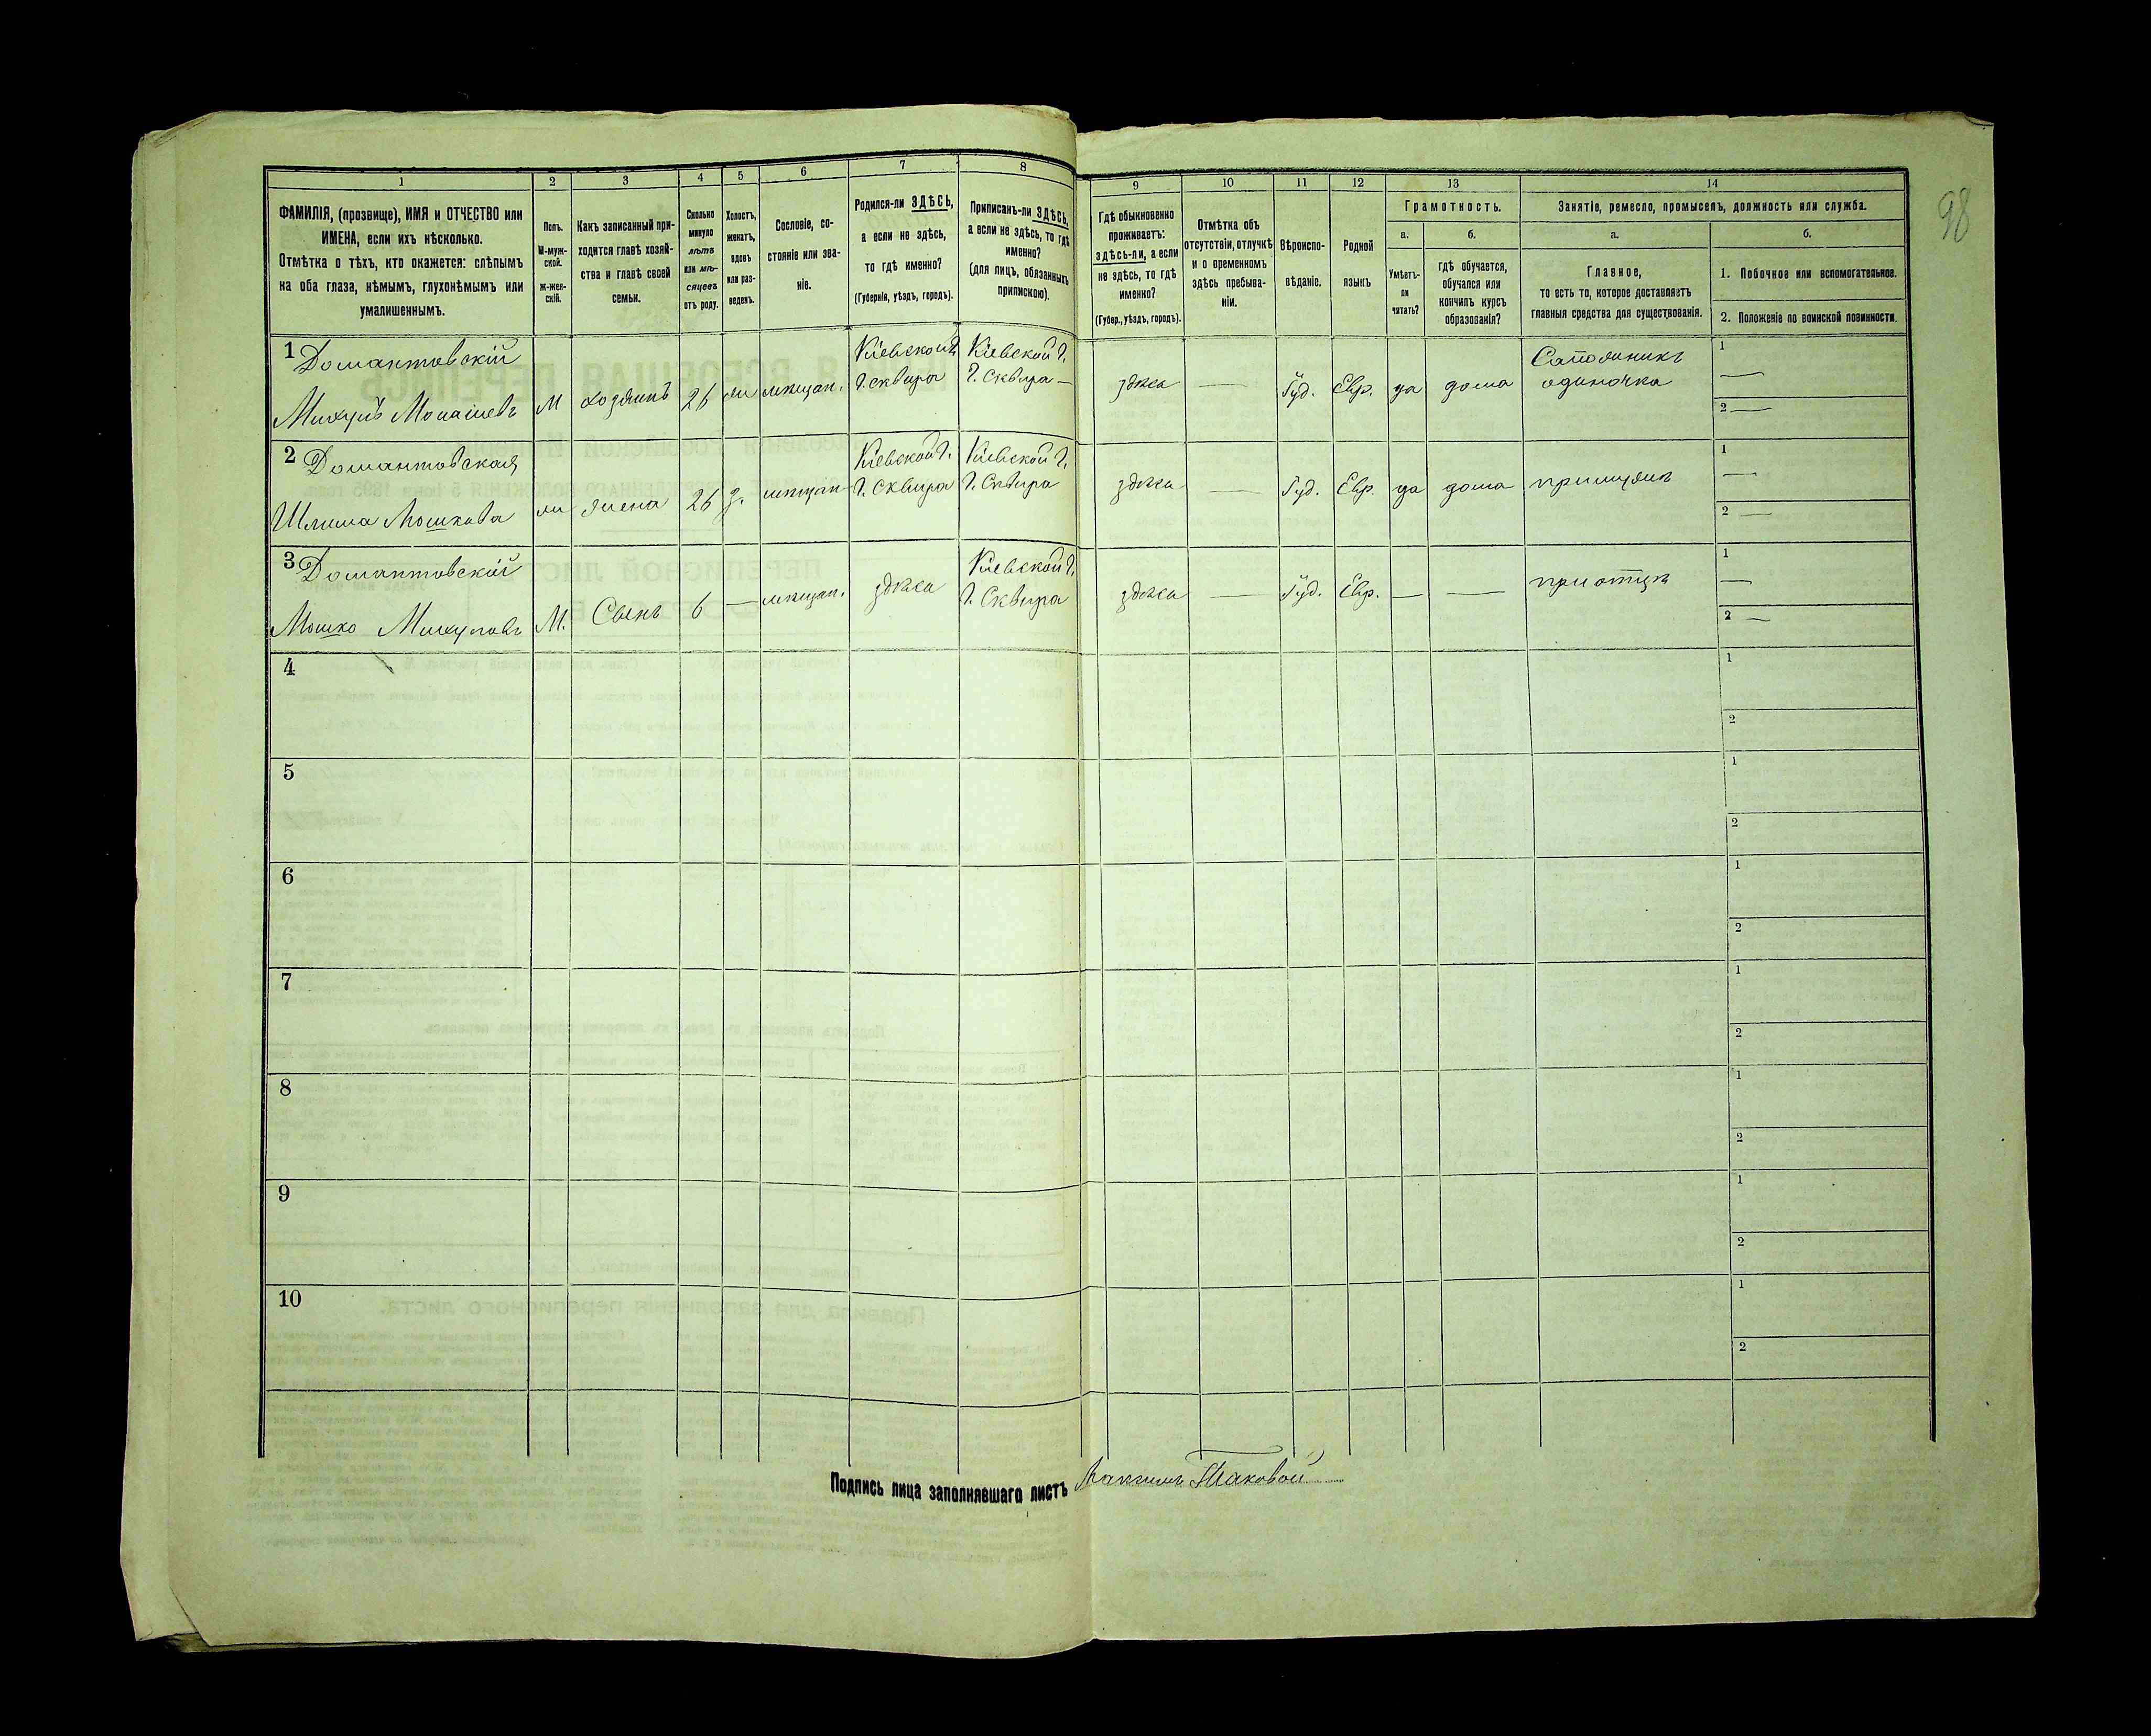 98
1 2 3 4 5 6 7 8 9 10 11 12 13 14
ФАМИЛІЯ, (прозвище), ИМЯ и ОТЧЕСТВО или
ИМЕНА, если ихъ нѣсколько.
Отмѣтка о тѣхъ, кто окажется: слѣпымъ
на оба глаза, нѣмымъ, глухонѣмымъ или
умалишеннымъ.
Полъ.
М-муж-
ской.
ж-жен-
скій.
Какъ записанный при-
ходится главѣ хозяй-
ства и главѣ своей
семьи.
Сколько
минуло
лѣтъ
или мѣ-
сяцевъ
отъ роду.
Холостъ,
женатъ,
вдовъ
или раз-
веденъ.
Сословіе, со-
стояніе или зва-
ніе.
Родился-ли ЗДѢСЬ,
а если не здѣсь,
то гдѣ именно?
(Губернія, уѣздъ, городъ).
Приписанъ-ли ЗДѢСЬ,
а если не здѣсь, то гдѣ
именно?
(для лицъ, обязанныхъ
припискою).
Гдѣ обыкновенно
проживаетъ:
здѣсь-ли, а если
не здѣсь, то гдѣ
именно?
(Губер., уѣздъ, городъ).
Отмѣтка объ
отсутствіи, отлучкѣ
и о временномъ
здѣсь пребыва-
ніи.
Вѣроиспо-
вѣданіе.
Родной
языкъ
Грамотность.
а.
Умѣетъ-
ли
читать?
б.
гдѣ обучается,
обучался или
кончилъ курсъ
образованія?
Занятіе, ремесло, промыселъ, должность или служба.
а.
Главное,
то есть то, которое доставляетъ
главныя средства для существованія.
б.
1. Побочное или вспомогательное.
2. Положеніе по воинской повинности.
1 Домантовскій
М хозяинъ 26 мѣщан.
Кіевской г.
г. Сквира
Кіевской г.
г. Сквира —
здѣсь — Іуд. Евр. да дома
Сапожникъ
одиночка
1 —
2 —
2 Домантовская
Мошкова
жена 26 з. мѣщан.
Кіевской г.
г. Сквира
Кіевской г.
г. Сквира
здѣсь — Іуд. Евр. да дома при мужѣ
1 —
2 —
3 Домантовскій
Мошко
М. Сынъ 6 — мѣщан. здѣсь
Кіевской г.
г. Сквира
здѣсь — Іуд. Евр. — — при отцѣ
1 —
2 —
4 1
2
5 1
2
6 1
2
7 1
2
8 1
2
9 1
2
10 1
2
Подпись лица заполнявшаго листъ